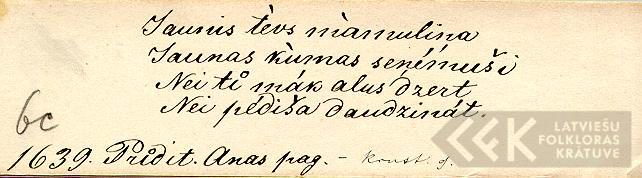 Jaunis tèvs màmulina
Jaunas kùmas señémuši
Nei tů̃ mák alus dzert
Nei pédiša daudzinát.
6c
1639. Prĩdit. Anas pag. – Konst. g.
LATVIEŠU
FOLKLORAS
KRĀTUVE